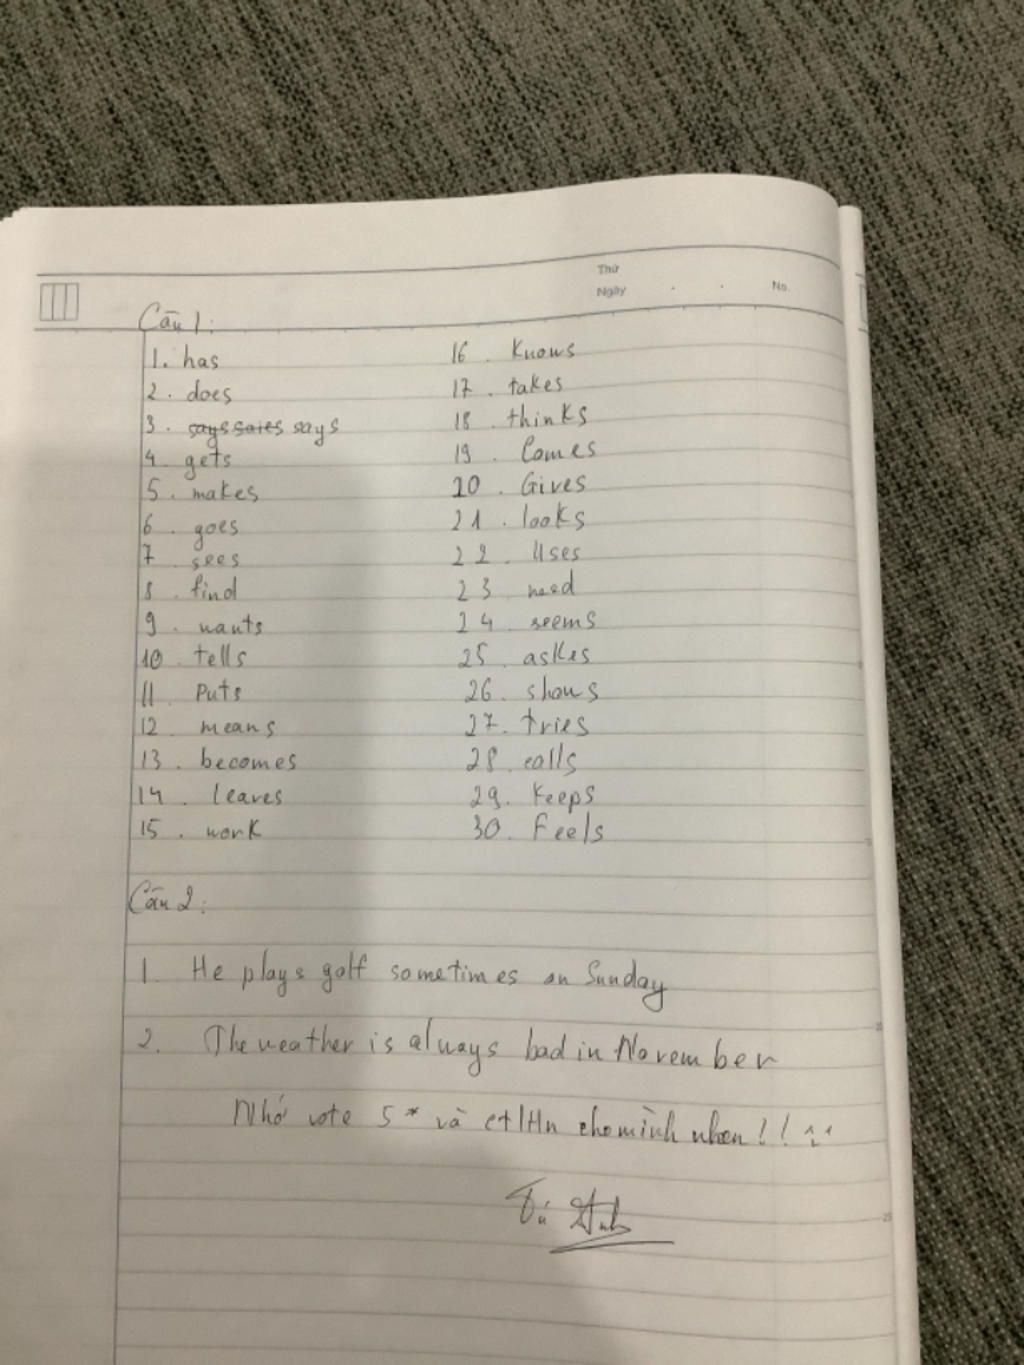 Thứ
Ngày
No.
Câu 1:
1. has
2. does
3. says saies says
4. gets
5. makes
6. goes
7 sees
8. find
9. wants
10. tells
11 Puts
12 means
13. becomes
14 leaves
15. work
16. Knows
17. takes
18. thinks
19. Comes
20. Gives
21. looks
22. Uses
23 need
24 seems
25. askes
26. shows
27. tries
28. calls
29. Keeps
30. Feels
Câu 2:
1. He plays golf sometimes on Sunday
2. The weather is always bad in November
Nhớ vote 5* và ctlHn cho mình nhen!! ^^
Tú Anh